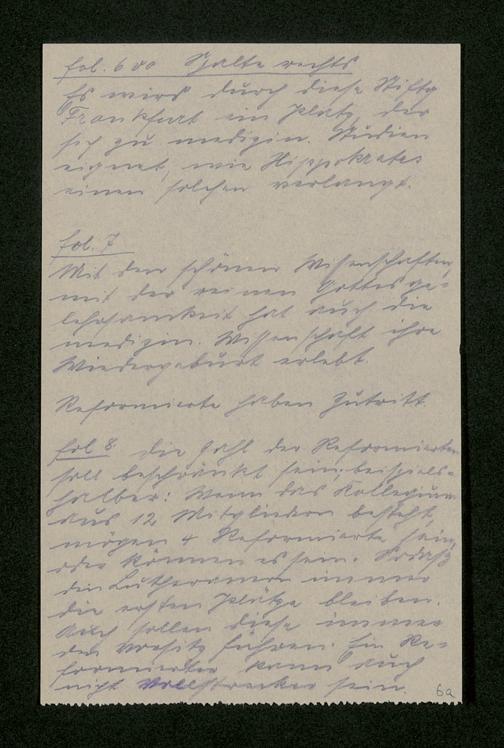 fol. 6 Spalte rechts
Es wird durch diese Stiftg
Frankfurt ein Platz, der
sich zu medizin. Studien
eignet, wie Hippokrates
einen solchen verlangt.
fol. 7
Mit den schönen Wissenschaften,
mit der reinen Gottesge-
lehrsamkeit hat auch die
medizin. Wissenschaft ihre
Wiedergeburt erlebt.
Reformierte haben Zutritt
fol 8. die Zahl der Reformierten
soll beschränkt sein: beispiels-
halber: Wenn das Kollegium
aus 12 Mitgliedern besteht,
mögen 4 Reformierte sein,
oder können es sein. Sodaß
den Lutheranern immer
die ersten Plätze bleiben.
Auch sollen diese immer
den Vorsitz führen. Ein Re-
formierter kann auch
nicht Vollstrecker sein.
6a